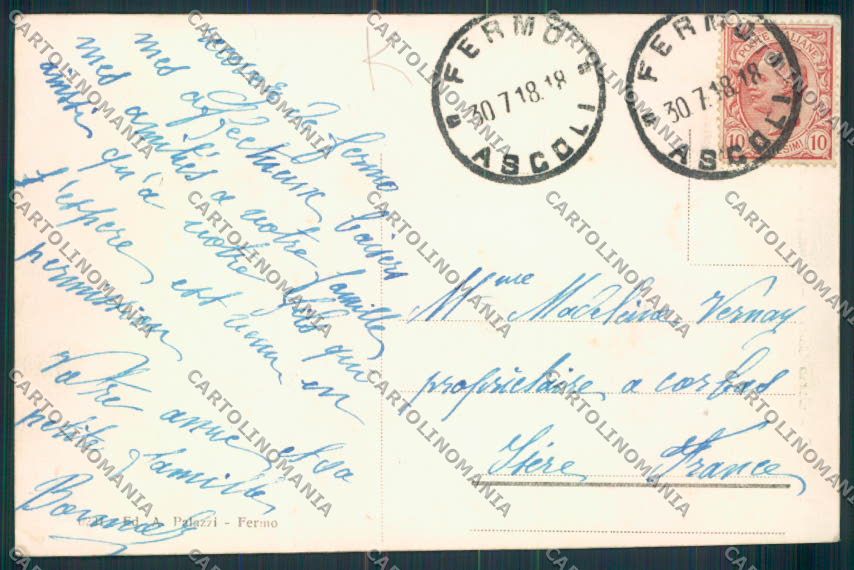 FERMO
30.7.18.18
ASCOLI
FERMO
30.7.18.18
ASCOLI
POSTE ITALIANE
10 10
de Fermo baisers
mes affectueux
mes amitiés a votre famille
ainsi qu'à votre fils qui
j'espère est venu en
permission
Votre amie et sa
petite famille
Mme Madeleine Vernay
propriétaire a corbas
Isère France
Ed. A. Palazzi - Fermo
CARTOLINOMANIA